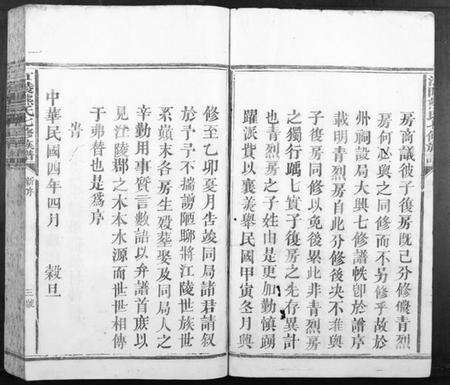 房商議彼子復房既已分修礙青烈
房何必與之同修而不另修乎故於
州祠設局大興七修譜帙卽於譜序
載明青烈房自此分修後决不准與
子復房同修以免後累此非青烈房
之獨行踽七實子復房之先存異計
也青烈房之子姓由是更加勤慎踴
躍派費以襄美舉民國甲寅冬月與
修至乙卯夏月告竣同局諸君請叙
於予予不揣謭陋聊將江陵世族世
系顛末各房生殁葬娶及同局人之
辛勤用事質言數語以弁譜首庶以
見江陵郡之木本水源而世世相傳
于弗替也是爲序
旹
中華民國四年四月　穀旦
三號